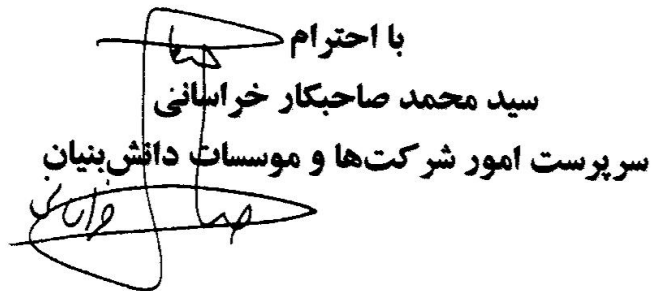 با احترام
سید محمد صاحبکار خراسانی
سرپرست امور شرکت‌ها و موسسات دانش‌بنیان